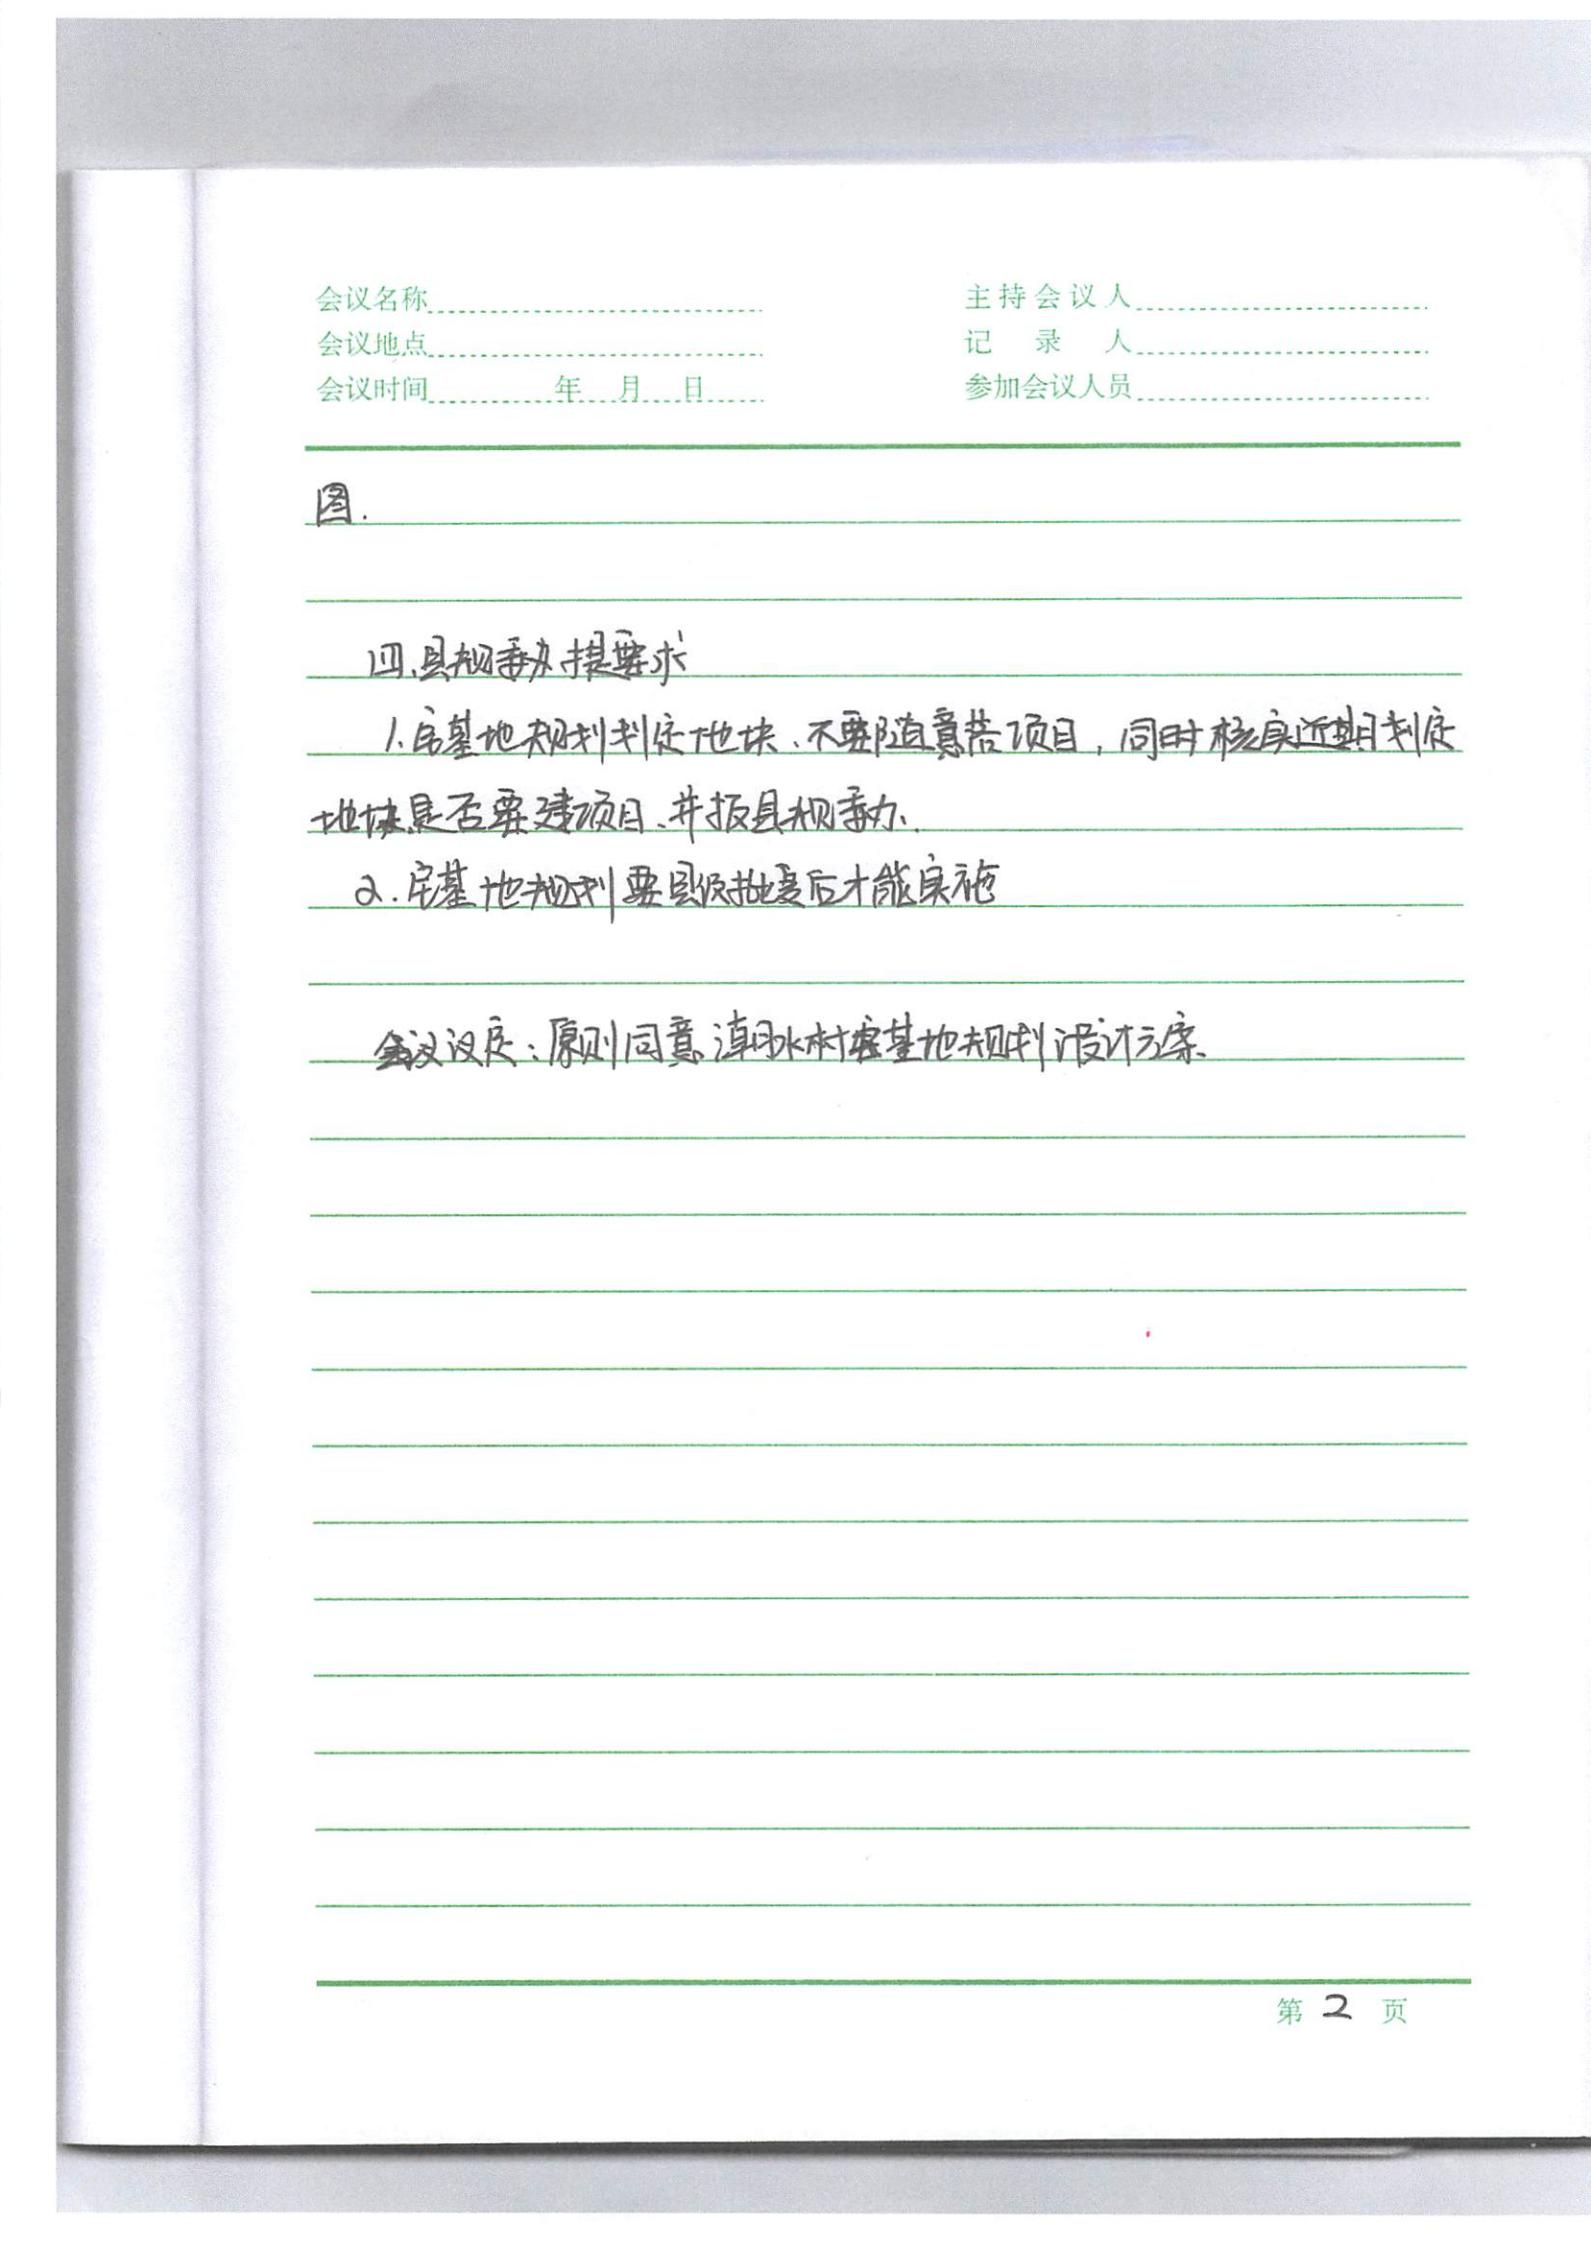 会议名称 主持会议人
会议地点 记录人
会议时间 年 月 日 参加会议人员
图.
四、县规委办提要求
1.宅基地规划划定地块、不要随意搭项目,同时核实近期划定
地块是否要建项目、并报县规委办.
2.宅基地规划要县级批复后才能实施
会议议定:原则同意潮水村宅基地规划设计方案、
第 2 页